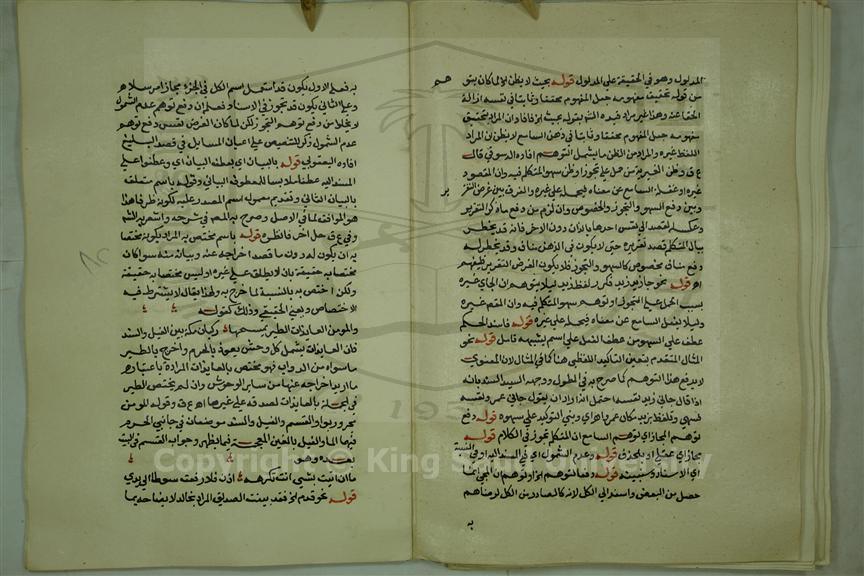 المدلول وهو في الحقيقة علي المدلول قوله بحيث لا يظن الا لما كان يتو هم
من قوله تحقيق مفهومه جعل المفهوم محققا وثابتا في نفسه ازالة
الخفا عنه وهذا غير مراد قيده الشم بقوله بحيث الخ فافاد ان المراد بتحقيق
مفهومه جعل المفهوم محققا وثابتا في ذهن السامع لا يظن ان المراد
اللفظ غيره والمراد من الظن ما يشمل التوهم افاده الدسوقي قال
ع ق وظن الغيرية من حمل علي تجوز او ظن سهو المتكلم فيه وان المقصود
غيره او غفلة السامع عن معناه فيحمله علي غيره والفرق بين غرض التقر ير
وبين دفع السهو والتجوز والخصوص وان لزم من دفع ماذكر التقرير
وعكسه القصد الي نفس احدهما بالذات دون الاخر فانه قد يخطر
ببال المتكلم قصد تقريره حتي لا يكون في الذهن مناف وقد يخطر له
دفع مناف مخصوص كالسهو والتجوز فلا يكون الغرض التقرير من حيث هو
اه قوله نحو جاز يد زيد فكرر لفظ زيد ليلا يتوهم ان الجاي غيره
بسبب الحمل علي التجوز او توهم سهو المتكلم فيه وان القصد غيره
وليلا يغفل السامع عن معناه فيحمله علي غيره قوله فاسند الحكم
عطف علي السهو من عطف الفعل علي اسم يشبهه تامل قوله نحو
المثال المتقدم يتعين التاكيد اللفظي هنا كما في المثال لان المعنوي
لا يدفع هذا التوهم كما صرح به في المطول ووجهه السيد السند بانه
اذا قال جاني زيد نفسه احتمل انه اراد ان يقول جاني عمرو نفسه
فسهي وتلفظ بزيد مكان عمرو اه اي وبني التوكيد علي سهوه قوله دفع
توهم المجاز اي توهم السامع ان المتكلم تجوز في الكلام قوله
مجاز اي عقليا او بالحذف قوله وعدم الشمول اي في المسند اليه او في النسبة
اي الاسناد وسببيته قوله دفعا لتوهم الخ او توهم ان المجي انما
حصل من البعض واسند الي الكل لانه كالصادر من الكل لرضاهم
به
به فعلي الاول يكون قد استعمل اسم الكل في الجزء مجازا مرسلا
وعلي الثاني يكون قد تجوز في الاسناد فعلم ان دفع توهم عدم الشمول
لا يخلو من دفع توهم التجوز لكن لما كان الغرض نفس دفع توهم
عدم الشمول ذكر للتنصيص علي اعيان المسايل في قصد البلغا
افاده اليعقوبي قوله بالبيان اي بعطف البيان اي وعطفا علي
المسند اليه عطفا ملابسا للمعطوف البياني وقوله باسم متعلق
بالبيان الثاني وتقديم معمول اسم المصدر وعليه لكونه ظرفا هذا
هو الموافق لما في الاصل وصرح به المصم في شرحه وانتصر له الشم
وفي ع ق حل اخر فانظره قوله باسم مختص به المراد بكونه مختصا
به ان يكون له دون ما قصد اخراجه عنه وبيانه منه سوا كان
مختصا به حقيقة بان لا يطلق علي غيره او ليس مختصا به حقيقة
ولكن اختص به بالنسبة لما خرج به ولهذا يقال لا يشترط فيه
الاختصاص ويعني الحقيقي وذلك كقوله
والمومن العايذات الطير يمسحها ركبان مكة بين الغيل والسند
فان العايذات يشمل كل وحش يعوذ بالحرم واخرج بالطير
ما سواه من الدواب فهو مختص بالعايذات المرادة باعتبار
ما اريد اخراجه عنها من ساير الوحوش وان لم يختص الطير
في الجملة بالعايذات لصدقه علي غيرها اه ع ق وقوله المومن
مجرور بواو القسم والغيل والسند موضعان في جانبي الحرم
فيهما الما والغيل بالغين المعجمة فما يظهر وجواب القسم في البيت
بعده وهو
ما ان اتيت بشي انت تكرهه اذن فلا رفعت سوطا الي يدي
قوله نحو قدم الخ فقد بينت الصديق المراد بخالد لا يضاحه بها